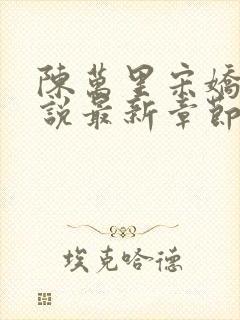 陳萬里宋嬌
說最新章節
埃克哈德